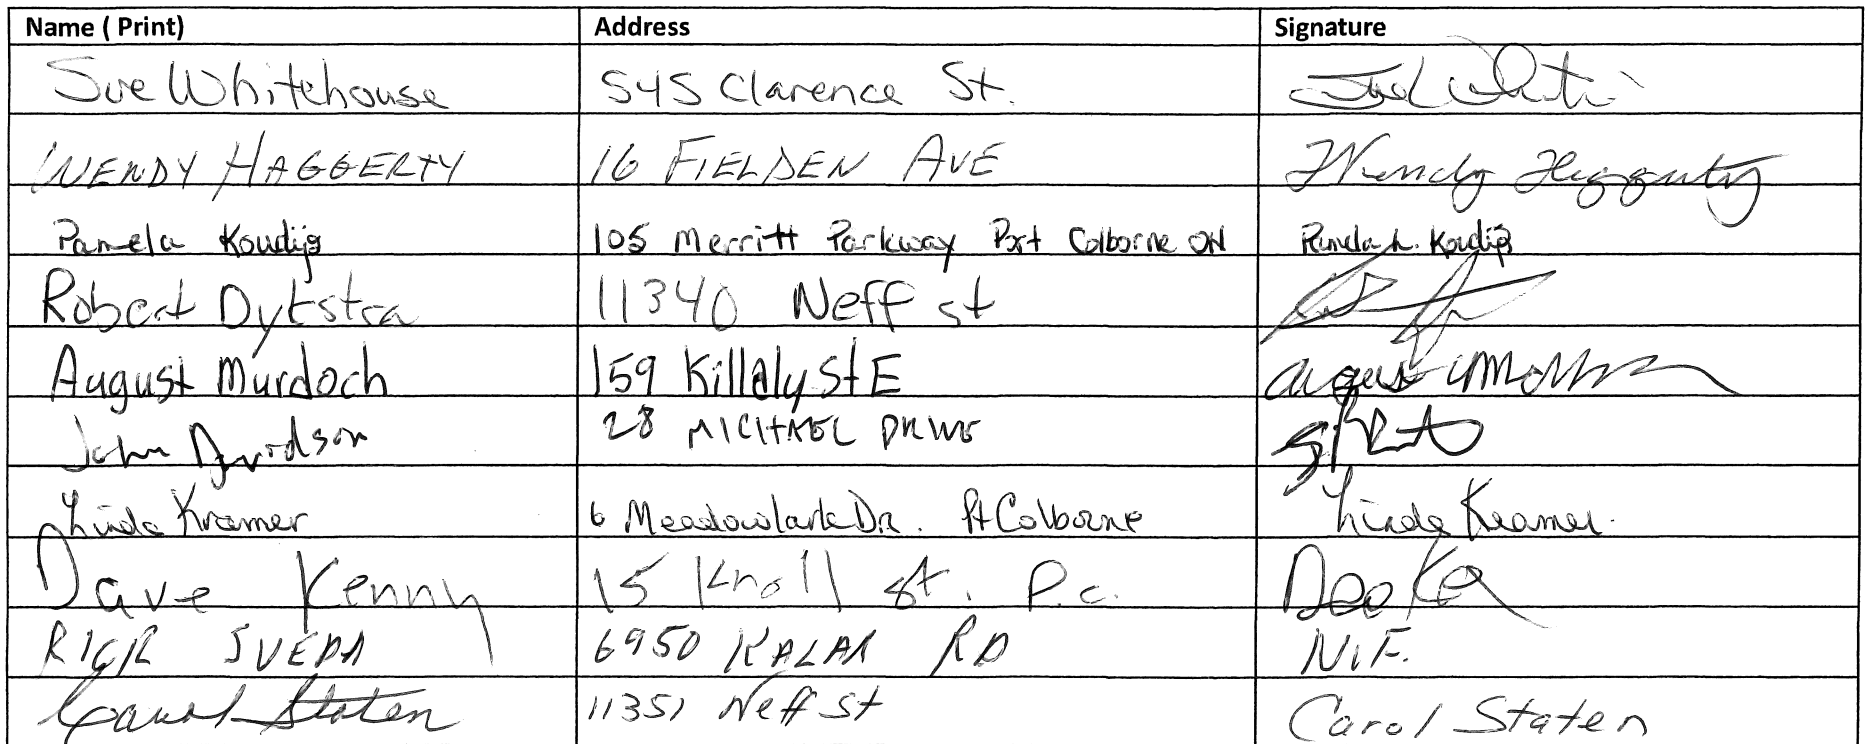 Name ( Print) Address Signature
Sue Whitehouse 545 Clarence St.
WENDY HAGGERTY 16 FIELDEN AVE Wendy Haggerty
Pamela Koudijs 105 Merritt Parkway Port Colborne ON Pamela L. Koudijs
Robert Dykstra 11340 Neff st
August Murdoch 159 Killaly St E August
John Davidson 28 MICHAEL DRIVE
Linda Kramer 6 Meadowlark DR. Pt Colborne Linda Kramer.
Dave Kenny 15 Knoll st. P.c.
RICK SVEDA 6950 KALAR RD N.F.
Carol Staten 11351 Neff St Carol Staten